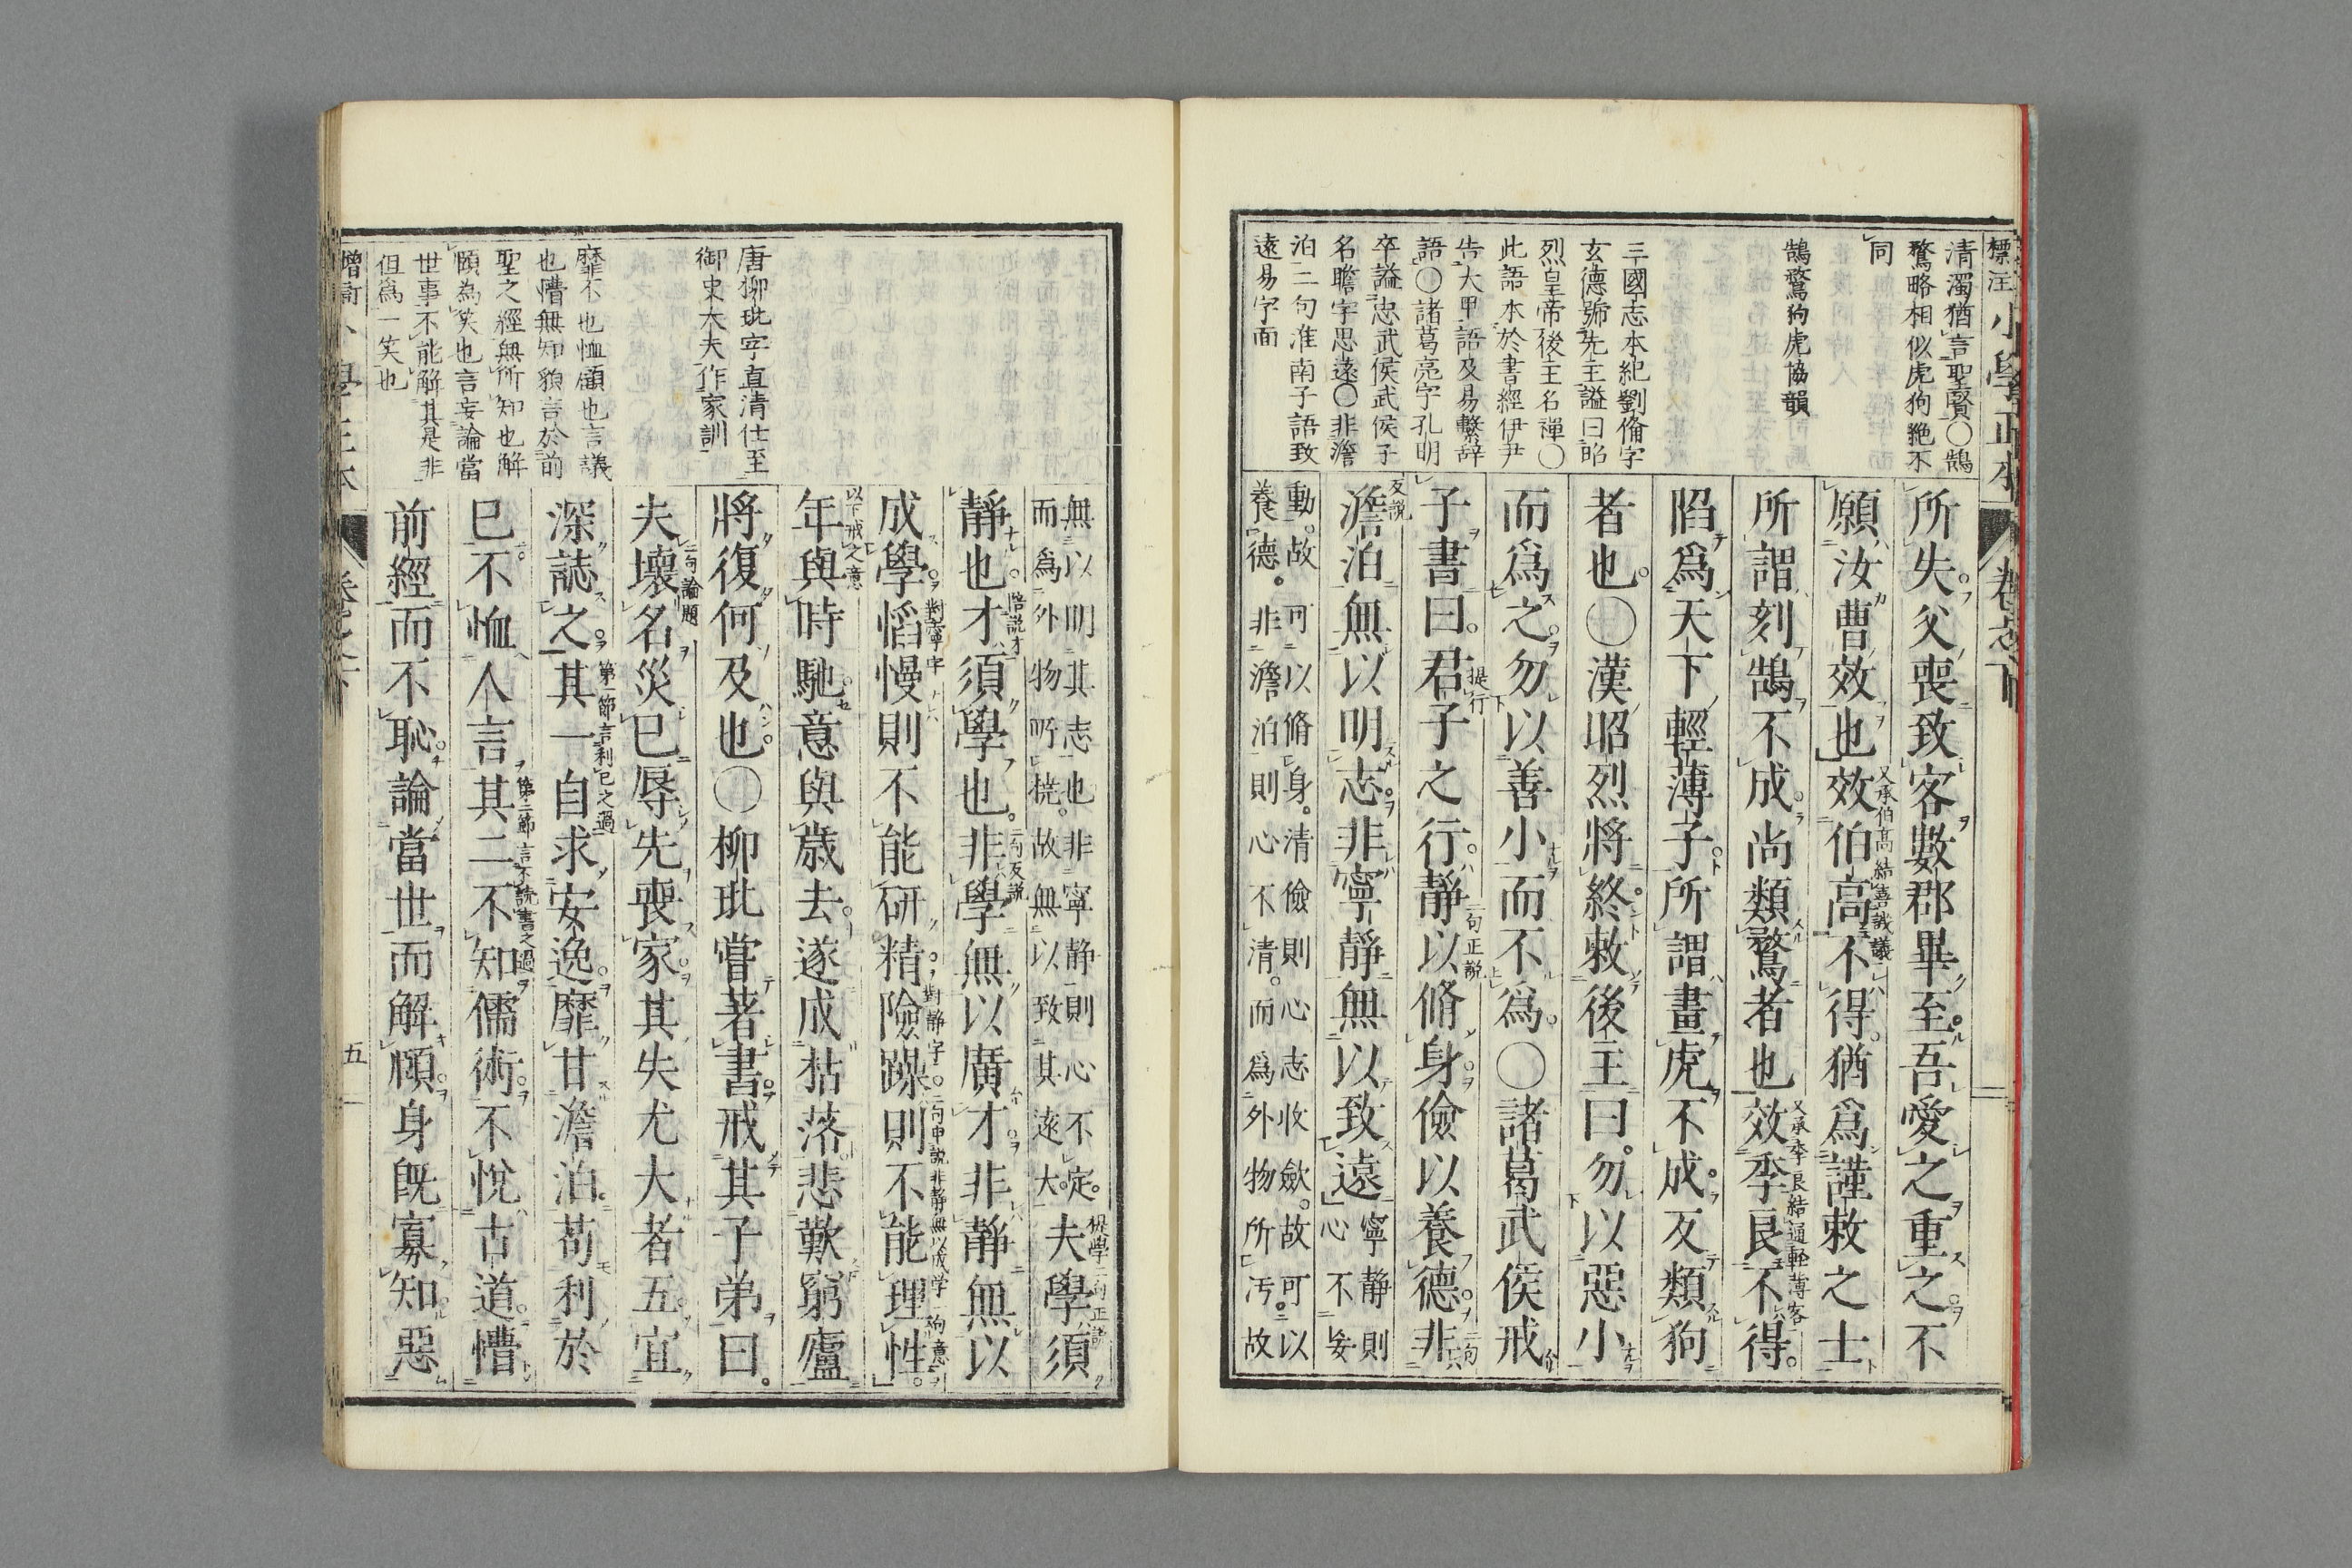 標注小學正本
清濁猶言聖賢〇鵠
鶩略相似虎狗艳不
同
鵠鶩狗虎協韻
三國志本紀劉備字
玄德號先主謚曰昭
烈皇帝後主名禪〇
此語本於書經伊尹
告大甲語及易繫辞
語〇諸葛亮字孔明
卒謚忠武侯武侯子
名瞻字思遠〇非澹
泊二句淮南子語致
遠易字面
所失父喪致客數郡畢至吾愛之重之不
願汝曹效也效伯高不得猶爲謹敕之士
又承伯高結善議議
所謂刻鵠不成尚類鶩者也效季良不得
又承季良結通輕薄客
陷爲天下輕薄子所謂畫虎不成反類狗
者也〇漢昭烈將終敕後主曰勿以惡小
而爲之勿以善小而不爲〇諸葛武侯戒
子書曰君子之行靜以脩身儉以養德非
提行
二句正説
二句
反説
澹泊無以明志非寧靜無以致遠
寧静則
心不妄
動故可以脩身清儉則心志收歛故可以
養德非澹泊則心不清而爲外物所汚故
無以明其志也非寧静則心不定
而爲外物所撓故無以致其遠大
夫學須
提學二句正説
靜也才須學也非學無以廣才非靜無以
陪説才
二句反説
成學慆慢則不能研精險躁則不能理性
對寧字
對静字
二句申説非静無以成学一殉意
年與時馳意與歲去遂成枯落悲歎窮廬
以下戒之意
將復何及也〇柳玭嘗著書戒其子弟曰
夫壞名災已辱先喪家其失尤大者五宜
二句論題
深誌之其一自求安逸靡甘澹泊苟利於
第一節言利已之過
已不恤人言其二不知儒術不悅古道懵
第二節言不読書之過
前經而不恥論當世而解頤身既寡知惡
唐柳玭字直清仕至
御史大夫作家訓
靡不也恤顧也言議
也懵無知貌言於前
聖之經無所知也解
頤為笑也言妄論當
世事不能解其是非
但爲一笑也
五